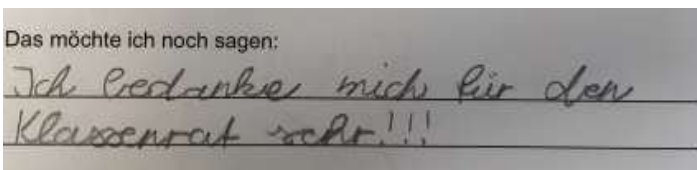 Das möchte ich noch sagen:
Ich bedanke mich für den
Klassenrat sehr!!!